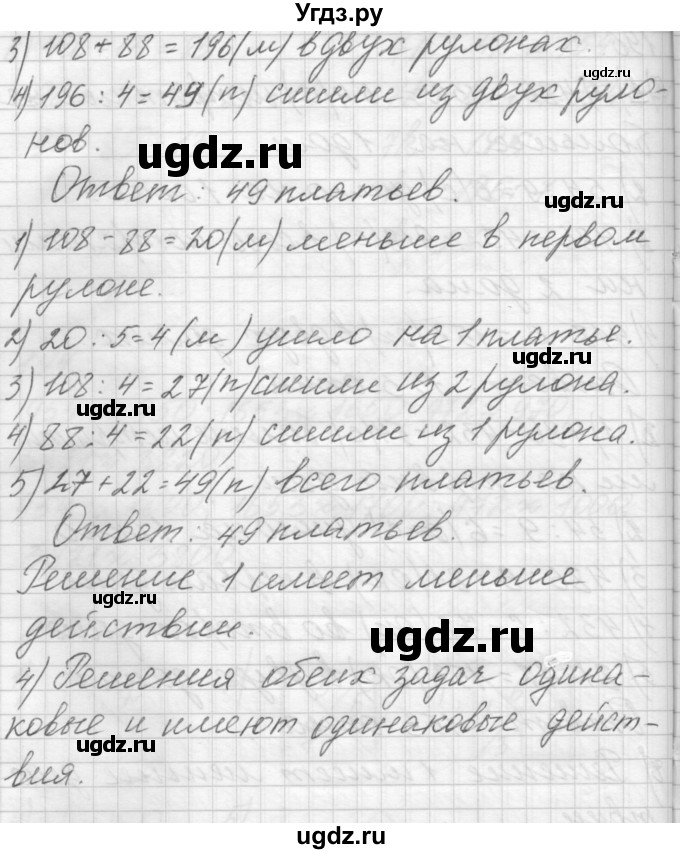 Угдз.ру
3) 108 + 88 = 196 (м) в двух рулонах.
ugdz.ru
4) 196 : 4 = 49 (п) сшили из двух руло-
нов.
ugdz.ru
Ответ: 49 платьев.
ugdz.ru
1) 108 - 88 = 20 (м) меньше в первом
рулоне.
2) 20 : 5 = 4 (м) ушло на 1 платье.
ugdz.ru
3) 108 : 4 = 27 (п) сшили из 2 рулона.
ugdz.ru
4) 88 : 4 = 22 (п) сшили из 1 рулона.
5) 27 + 22 = 49 (п) всего платьев.
Ответ: 49 платьев.
Решение 1 имеет меньше
ugdz.ru
действии.
ugdz.ru
4) Решения обеих задач одина-
ковые и имеют одинаковые дейст-
ugdz.ru
вия.
ugdz.ru